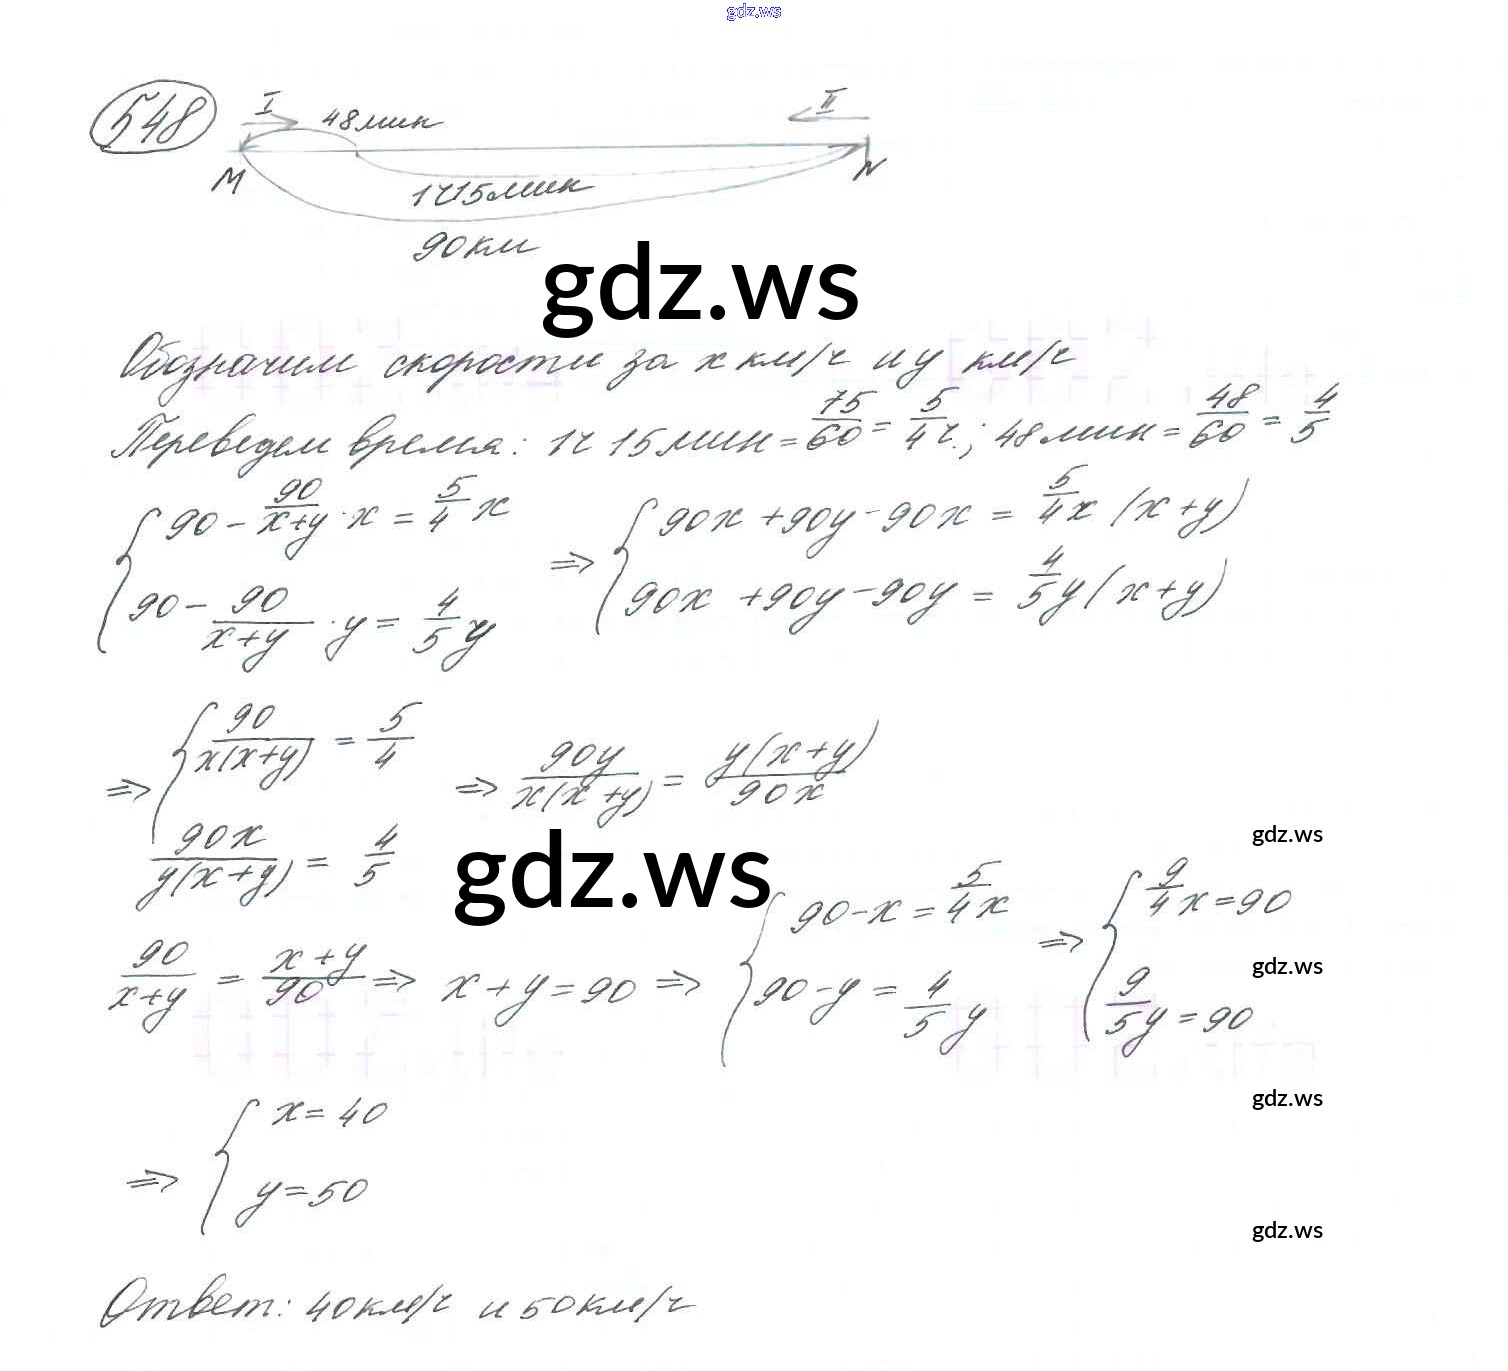 gdz.ws
548
I 48 мин II
M N
1ч15мин
90км
gdz.ws
Обозначим скорости за x км/ч и y км/ч
Переведем время: 1ч 15 мин = 75/60 = 5/4 ч.; 48 мин = 48/60 = 4/5
{ 90 − 90/(x+y) · x = 5/4 x ⇒ { 90x + 90y − 90x = 5/4 x (x+y)
90 − 90/(x+y) · y = 4/5 y 90x + 90y − 90y = 4/5 y (x+y)
⇒ { 90/(x(x+y)) = 5/4 ⇒ 90y/(x(x+y)) = y(x+y)/(90x)
90x/(y(x+y)) = 4/5
gdz.ws
gdz.ws
90/(x+y) = (x+y)/90 ⇒ x + y = 90 ⇒ { 90 − x = 5/4 x ⇒ { 9/4 x = 90
90 − y = 4/5 y 9/5 y = 90
gdz.ws
gdz.ws
⇒ { x = 40
y = 50
gdz.ws
Ответ: 40км/ч и 50км/ч